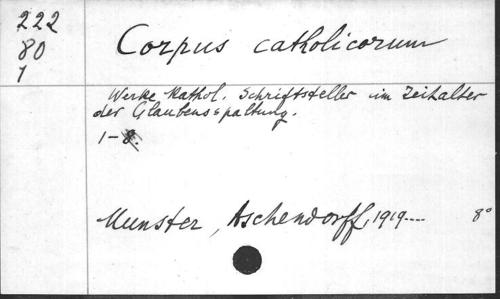 222
80
1
Corpus catholicorum
Werke Kathol. Schriftsteller im Zeitalter
der Glaubensspaltung.
1-8.
Munster, Aschendorff, 1919....
8°